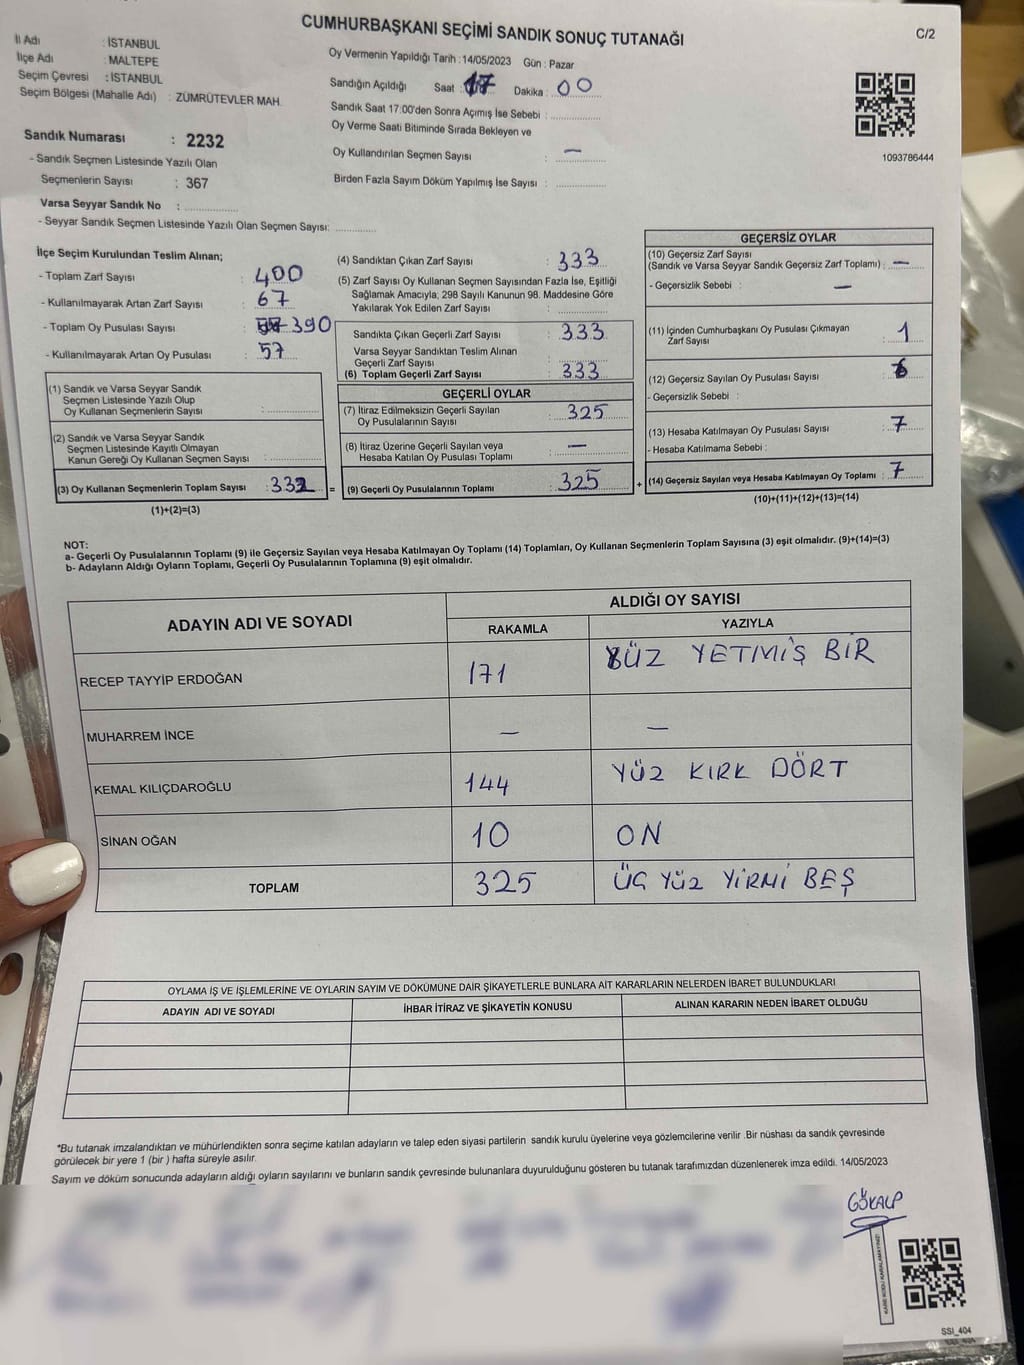 CUMHURBAŞKANI SEÇİMİ SANDIK SONUÇ TUTANAĞI
C/2
İl Adı : İSTANBUL
İlçe Adı : MALTEPE
Seçim Çevresi : İSTANBUL
Seçim Bölgesi (Mahalle Adı) : ZÜMRÜTEVLER MAH.
Oy Vermenin Yapıldığı Tarih : 14/05/2023 Gün : Pazar
Sandığın Açıldığı Saat : 17 Dakika : 00
Sandık Saat 17:00'den Sonra Açımış İse Sebebi :
Oy Verme Saati Bitiminde Sırada Bekleyen ve
Oy Kullandırılan Seçmen Sayısı : —
Birden Fazla Sayım Döküm Yapılmış İse Sayısı :
1093786444
Sandık Numarası : 2232
- Sandık Seçmen Listesinde Yazılı Olan
Seçmenlerin Sayısı : 367
Varsa Seyyar Sandık No :
- Seyyar Sandık Seçmen Listesinde Yazılı Olan Seçmen Sayısı:
İlçe Seçim Kurulundan Teslim Alınan;
- Toplam Zarf Sayısı : 400
- Kullanılmayarak Artan Zarf Sayısı : 67
- Toplam Oy Pusulası Sayısı : 390
- Kullanılmayarak Artan Oy Pusulası : 57
(1) Sandık ve Varsa Seyyar Sandık
Seçmen Listesinde Yazılı Olup
Oy Kullanan Seçmenlerin Sayısı :
(2) Sandık ve Varsa Seyyar Sandık
Seçmen Listesinde Kayıtlı Olmayan
Kanun Gereği Oy Kullanan Seçmen Sayısı :
(3) Oy Kullanan Seçmenlerin Toplam Sayısı : 332 =
(1)+(2)=(3)
(4) Sandıktan Çıkan Zarf Sayısı : 333
(5) Zarf Sayısı Oy Kullanan Seçmen Sayısından Fazla İse, Eşitliği
Sağlamak Amacıyla, 298 Sayılı Kanunun 98. Maddesine Göre
Yakılarak Yok Edilen Zarf Sayısı :
Sandıkta Çıkan Geçerli Zarf Sayısı : 333
Varsa Seyyar Sandıktan Teslim Alınan
Geçerli Zarf Sayısı :
(6) Toplam Geçerli Zarf Sayısı : 333
GEÇERLİ OYLAR
(7) İtiraz Edilmeksizin Geçerli Sayılan
Oy Pusulalarının Sayısı : 325
(8) İtiraz Üzerine Geçerli Sayılan veya
Hesaba Katılan Oy Pusulası Toplamı : —
(9) Geçerli Oy Pusulalarının Toplamı : 325 +
GEÇERSİZ OYLAR
(10) Geçersiz Zarf Sayısı
(Sandık ve Varsa Seyyar Sandık Geçersiz Zarf Toplamı) : —
- Geçersizlik Sebebi : —
(11) İçinden Cumhurbaşkanı Oy Pusulası Çıkmayan
Zarf Sayısı : 1
(12) Geçersiz Sayılan Oy Pusulası Sayısı :
- Geçersizlik Sebebi :
(13) Hesaba Katılmayan Oy Pusulası Sayısı : 7
- Hesaba Katılmama Sebebi :
(14) Geçersiz Sayılan veya Hesaba Katılmayan Oy Toplamı : 7
(10)+(11)+(12)+(13)=(14)
NOT:
a- Geçerli Oy Pusulalarının Toplamı (9) ile Geçersiz Sayılan veya Hesaba Katılmayan Oy Toplamı (14) Toplamları, Oy Kullanan Seçmenlerin Toplam Sayısına (3) eşit olmalıdır. (9)+(14)=(3)
b- Adayların Aldığı Oyların Toplamı, Geçerli Oy Pusulalarının Toplamına (9) eşit olmalıdır.
ADAYIN ADI VE SOYADI
ALDIĞI OY SAYISI
RAKAMLA YAZIYLA
RECEP TAYYİP ERDOĞAN 171 YÜZ YETMİŞ BİR
MUHARREM İNCE — —
KEMAL KILIÇDAROĞLU 144 YÜZ KIRK DÖRT
SİNAN OĞAN 10 ON
TOPLAM 325 ÜÇ YÜZ YİRMİ BEŞ
OYLAMA İŞ VE İŞLEMLERİNE VE OYLARIN SAYIM VE DÖKÜMÜNE DAİR ŞİKAYETLERLE BUNLARA AİT KARARLARIN NELERDEN İBARET BULUNDUKLARI
ADAYIN ADI VE SOYADI İHBAR İTİRAZ VE ŞİKAYETİN KONUSU ALINAN KARARIN NEDEN İBARET OLDUĞU
*Bu tutanak imzalandıktan ve mühürlendikten sonra seçime katılan adayların ve talep eden siyasi partilerin sandık kurulu üyelerine veya gözlemcilerine verilir .Bir nüshası da sandık çevresinde
görülecek bir yere 1 (bir ) hafta süreyle asılır.
Sayım ve döküm sonucunda adayların aldığı oyların sayılarını ve bunların sandık çevresinde bulunanlara duyurulduğunu gösteren bu tutanak tarafımızdan düzenlenerek imza edildi. 14/05/2023
GÖKALP
KARE KODU KARALAMAYINIZ!
SSI_404